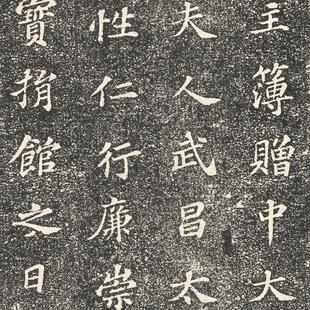 主簿贈中大
夫人武昌太
性仁行廉崇
寶捐館之日